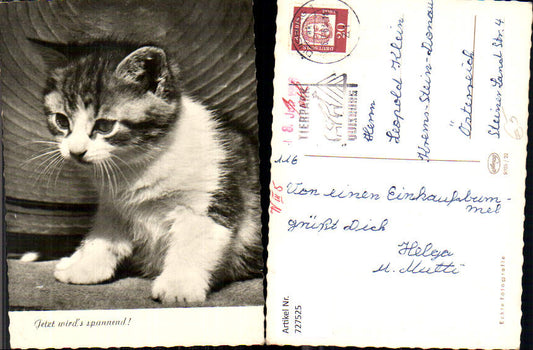 Jetzt wird's spannend!
20
DEUTSCHE
TIERPARK
DUISBURG
Herrn
Leopold Klein
Krems-Stein-Donau
Österreich
Steiner Land Str. 4
116
Von einen Einkaufsbum-
mel
grüßt Dich
Helga
u. Mutti
Echte Fotografie
Artikel Nr.
727525